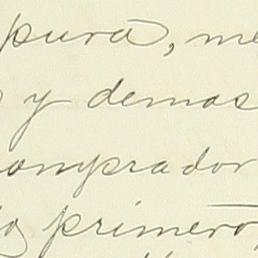 pura, me
y demas
comprador
primero,